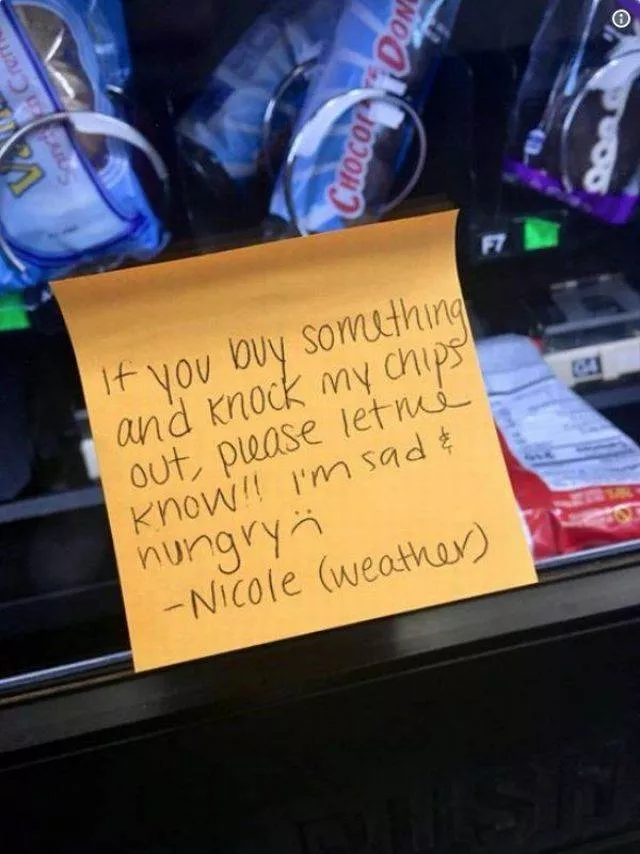 CHOCOL
DON
F7
G4
If you buy something
and knock my chips
out, please let me
know!! I'm sad &
hungry
-Nicole (weather)